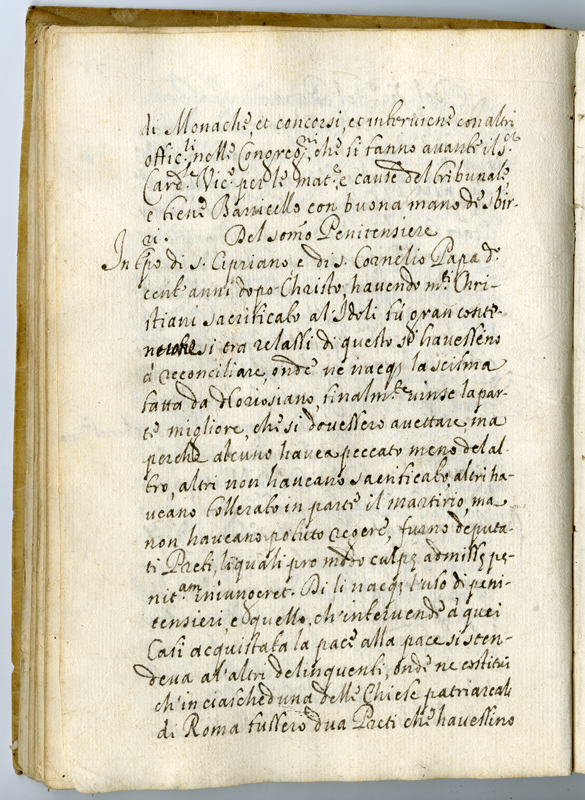 di Monache, et concorsi, et interviene con altri
offic.li nelle Congreg.ni, che si fanno avanti il S.r
Card.e Vic.o per le mat.e e cause del tribunale
e tiene Barricello con buona mano de sbir-
ri. Del som̃o Penitensiere
In tp̃o di S. Cipriano e di S. Cornelio Papa d.
cent' anni dopo Christo, havendo m.ti Chri-
stiani sacrificato al' Idoli fu gran conte-
si tra relassi di questo si havessino
à reconciliare, onde ne nacq; la scisma
fatta da Novosiano, finalm.te vinse la par-
te migliore, che si dovessero acettare, ma
perche alcuno havea peccato meno del al-
tro, altri non haveano sacrificato, altri ha-
veano tollerato in parte il martirio, ma
non haveano potuto regere, furno deputa-
ti Preti, li quali pro modo culpę admissę pe-
nit.am iniungeret. Di li nacq; l'uso di peni-
tensieri, e quello, ch' intervende à quei
Casi acquistata la pace alla pace si sten-
deva al' altri delinquenti, onde ne costitui
ch' in ciascheduna delle Chiese patriarcali
di Roma fussero dua Preti che havessino